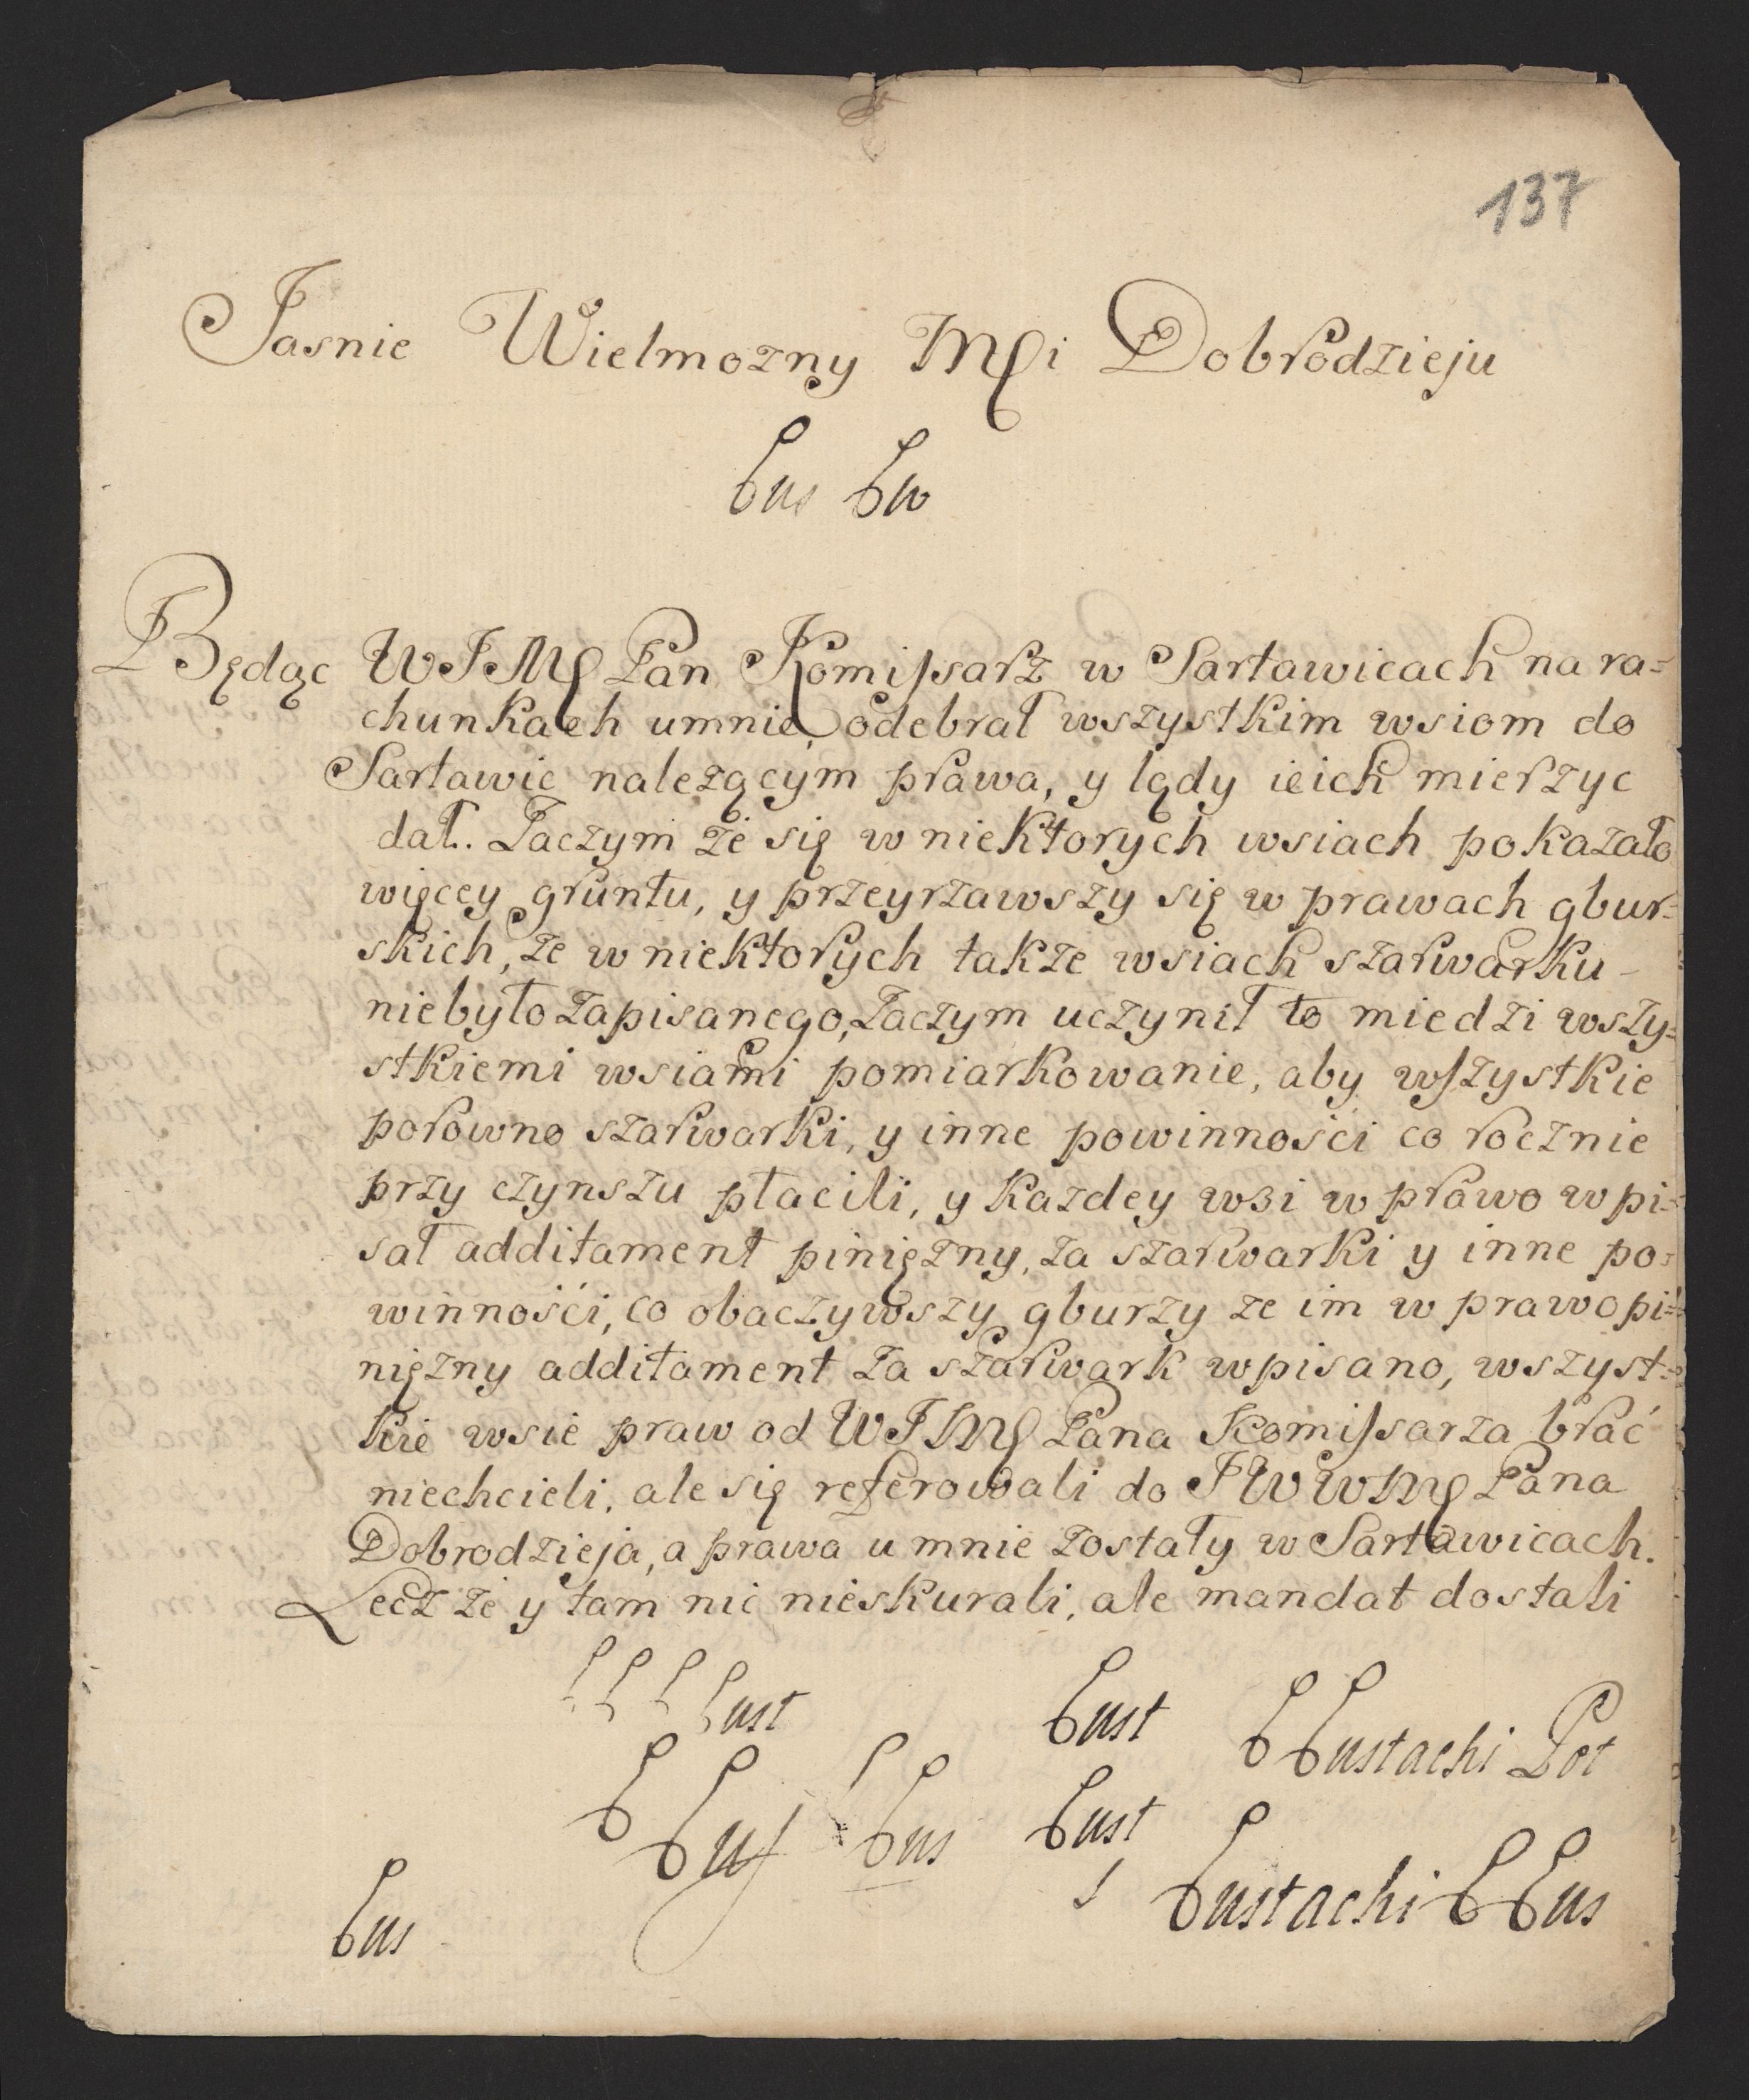 137
Jasnie Wielmozny Mći Dobrodzieju
Eus Eu
Będąc WJMć Pan Komissarz w Sartawicach na ra=
chunkach umnie, odebrał wszystkim wsiom do
Sartawic należącym prawa, y lądy ieich mierzyc
dał. Zaczym że się w niektorych wsiach pokazało
więcey gruntu, y przeyrzawszy się w prawach gbur=
skich, że w niektorych także wsiach szarwarku
niebyło zapisanego, zaczym uczynił to miedzi wszy=
stkiemi wsiami pomiarkowanie, aby wszystkie
porowno szarwarki, y inne powinności co rocznie
przy czynszu płacili, y kazdey wsi w prawo wpi=
sał additament pinięzny, za szarwarki y inne po=
winnośći, co obaczywszy gburzy ze im w prawo pi=
nięzny additament za szarwark wpisano, wszyst=
kie wsie praw od WJMć Pana Komissarza brać
niechcieli, ale się referowali do JWWMć Pana
Dobrodzieja, a prawa u mnie zostały w Sartawicach.
Lecz że y tam nic nieskurali, ale mandat dostali
E E E Eust Eust E Eustachi Pot
E Eus Eus Eust
Eustachi E Eus
Eus